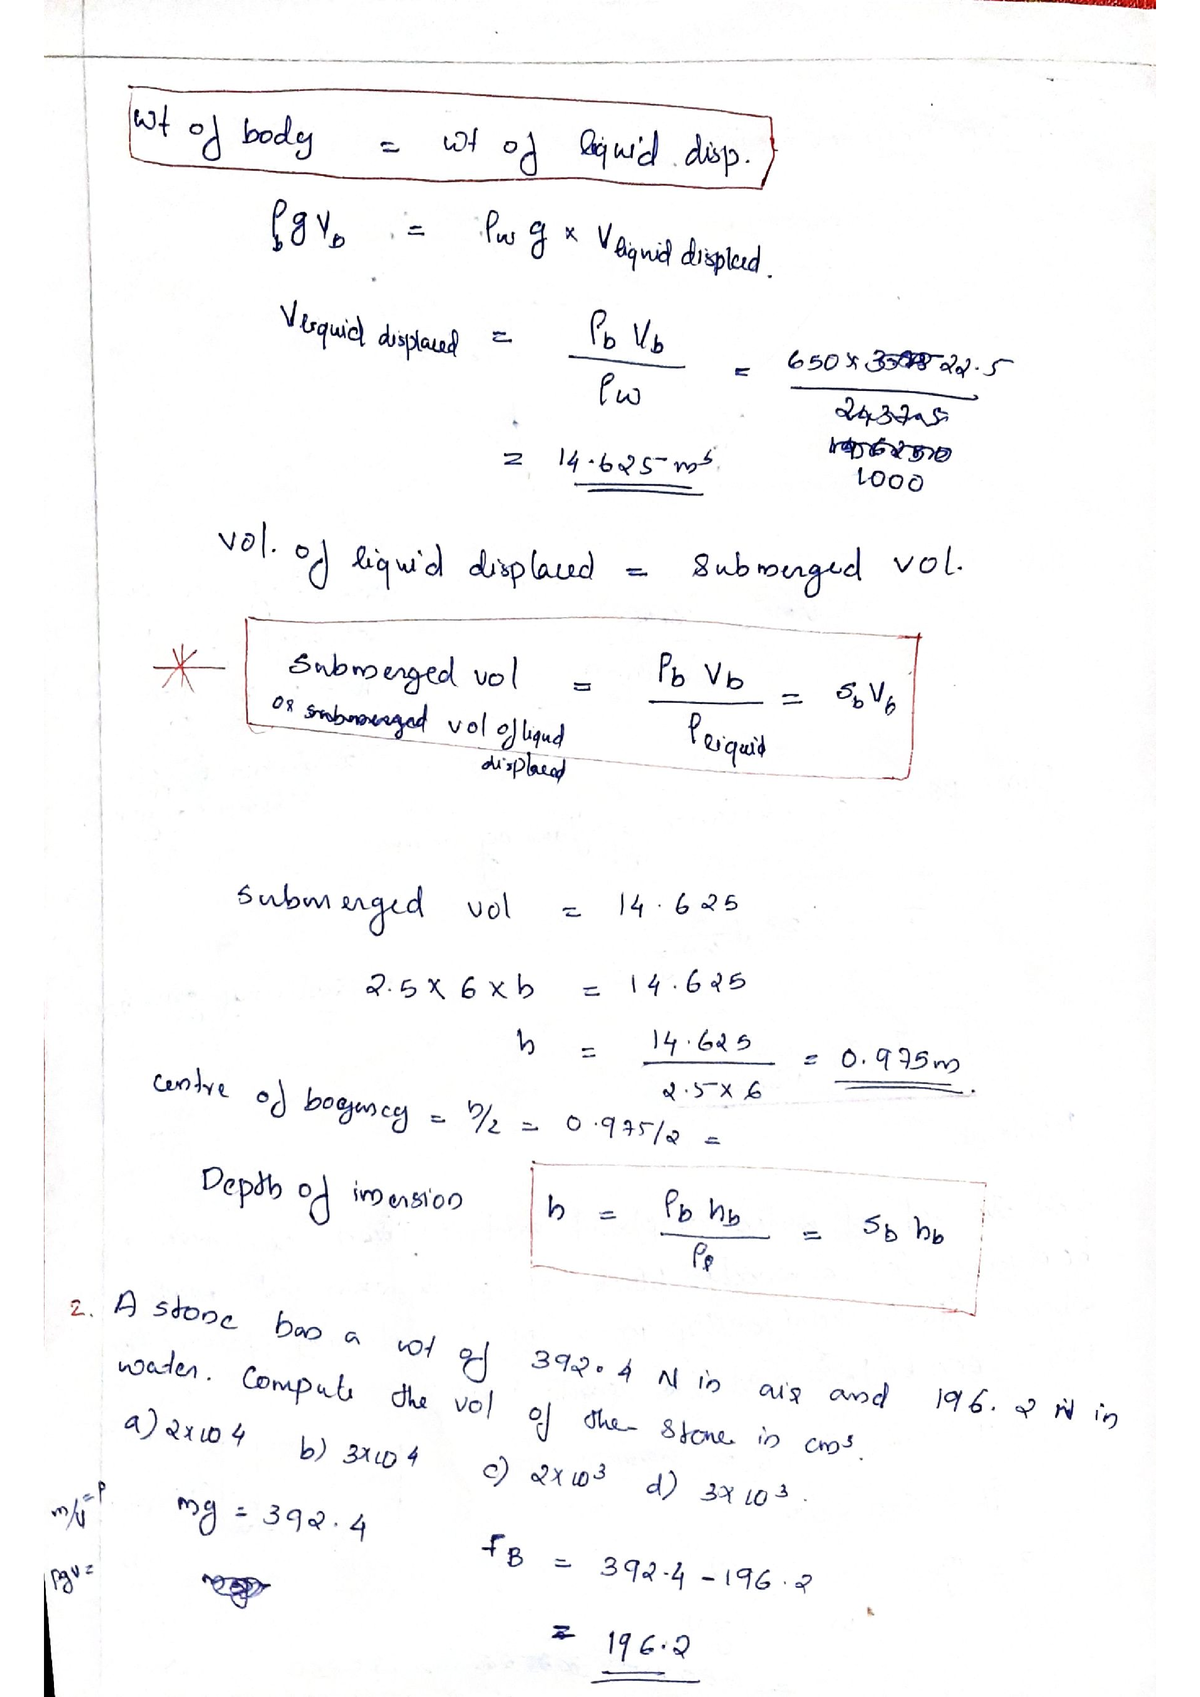 wt of body = wt of liquid disp.
ρb g Vb = ρw g × V liquid displced.
V liquid displaced = ρb Vb / ρw = 650 × 22.5 / 1000
= 14.625 m³
vol. of liquid displaced = submerged vol.
submerged vol = ρb Vb / ρliquid = Sb Vb
or submerged vol of liqud
displaced
submerged vol = 14.625
2.5 × 6 × h = 14.625
h = 14.625 / 2.5 × 6 = 0.975m.
centre of bogency = h/2 = 0.975/2 =
Depth of imersion h = ρb hb / ρl = Sb hb
2. A stone has a wt of 392.4 N in air and 196.2 N in
water. Compute the vol of the stone in cm³.
a) 2×10 4 b) 3×10 4 c) 2×10³ d) 3×10³.
m/v = ρ mg = 392.4 FB = 392.4 - 196.2
ρgv =
= 196.2